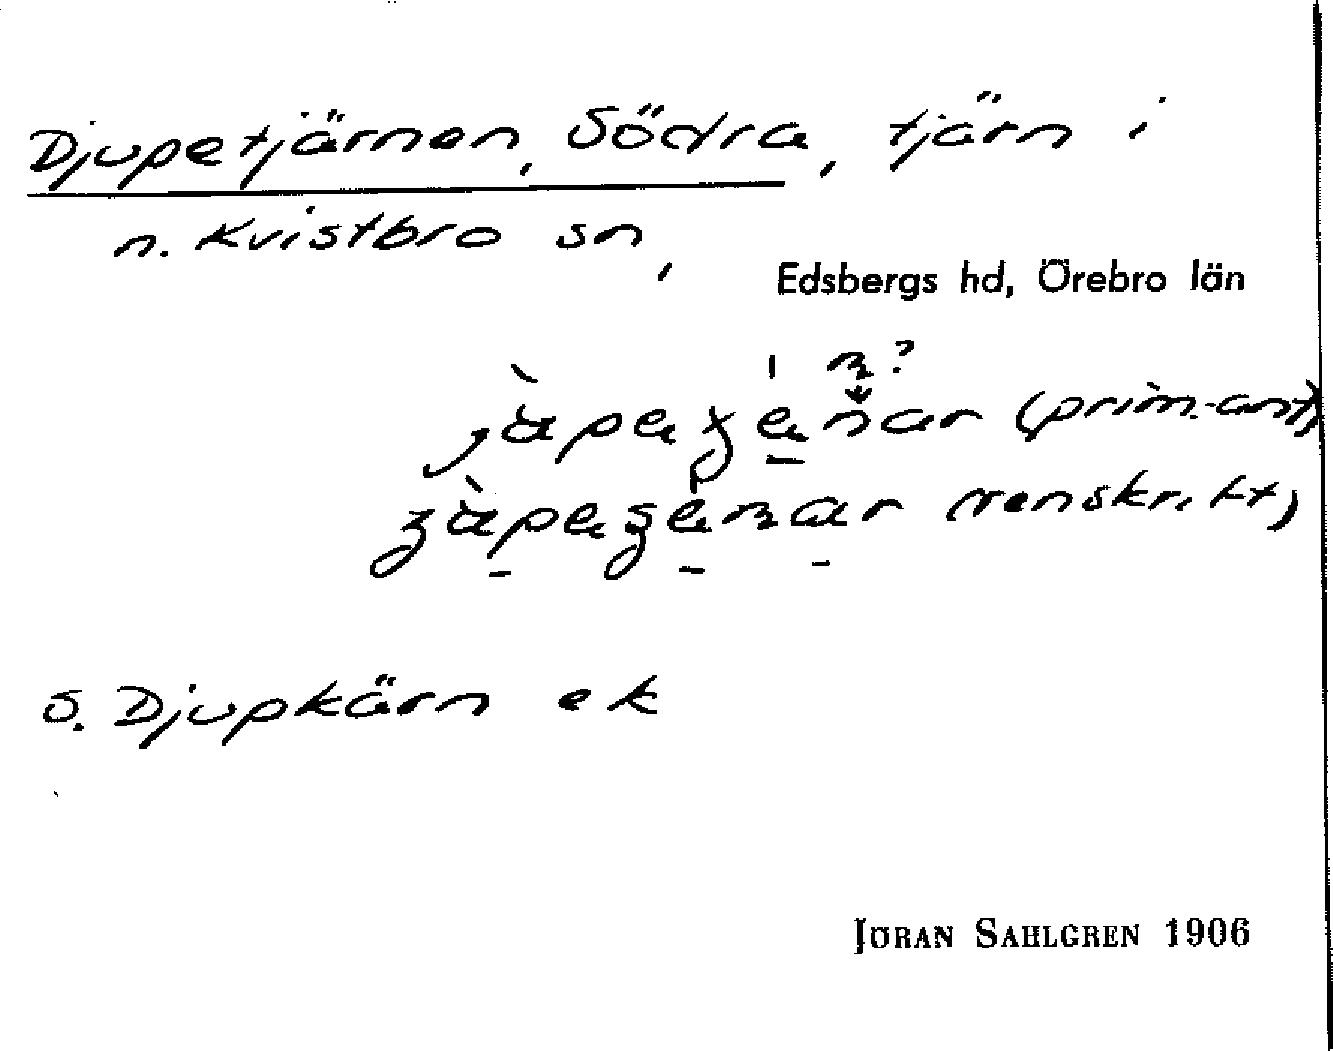 Djupetjärnen, Södra, tjärn i
n. Kvistbro sn,
Edsbergs hd, Örebro län
(prim.-ant)
(renskrift)
S. Djupkärn ek
JÖRAN SAHLGREN 1906